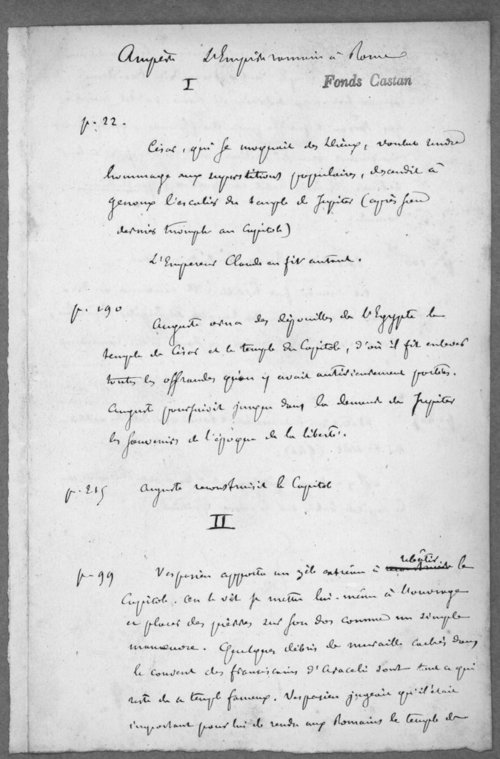 Ampère L'Empire romain à Rome
I
Fonds Castan
p. 22.
César, qui se moquait des Dieux, voulut rendre
hommage aux superstitions populaires, descendit à
genoux l'escalier du temple de Jupiter (après son
dernier triomphe au Capitole)
L'Empereur Claude en fit autant.
p. 190
Auguste orna des dépouilles de l'Egypte le
temple de César et le temple du Capitole, d'où il fit enlever
toutes les offrandes qu'on y avait antérieurement portées.
Auguste poursuivit jusque dans la demeure de Jupiter
les souvenirs de l'époque de la liberté.
p. 215 Auguste reconstruisit le Capitole
II
p. 99 Vespasien apporta un zèle extrême à rebâtir le
Capitole. On le vit se mettre lui-même à l'ouvrage
et placer des pierres sur son dos comme un simple
manœuvre. Quelques débris de murailles cachés dans
le couvent des franciscains d'Araceli sont tout ce qui
reste de ce temple fameux. Vespasien jugeait qu'il était
important pour lui de rendre aux Romains le temple de